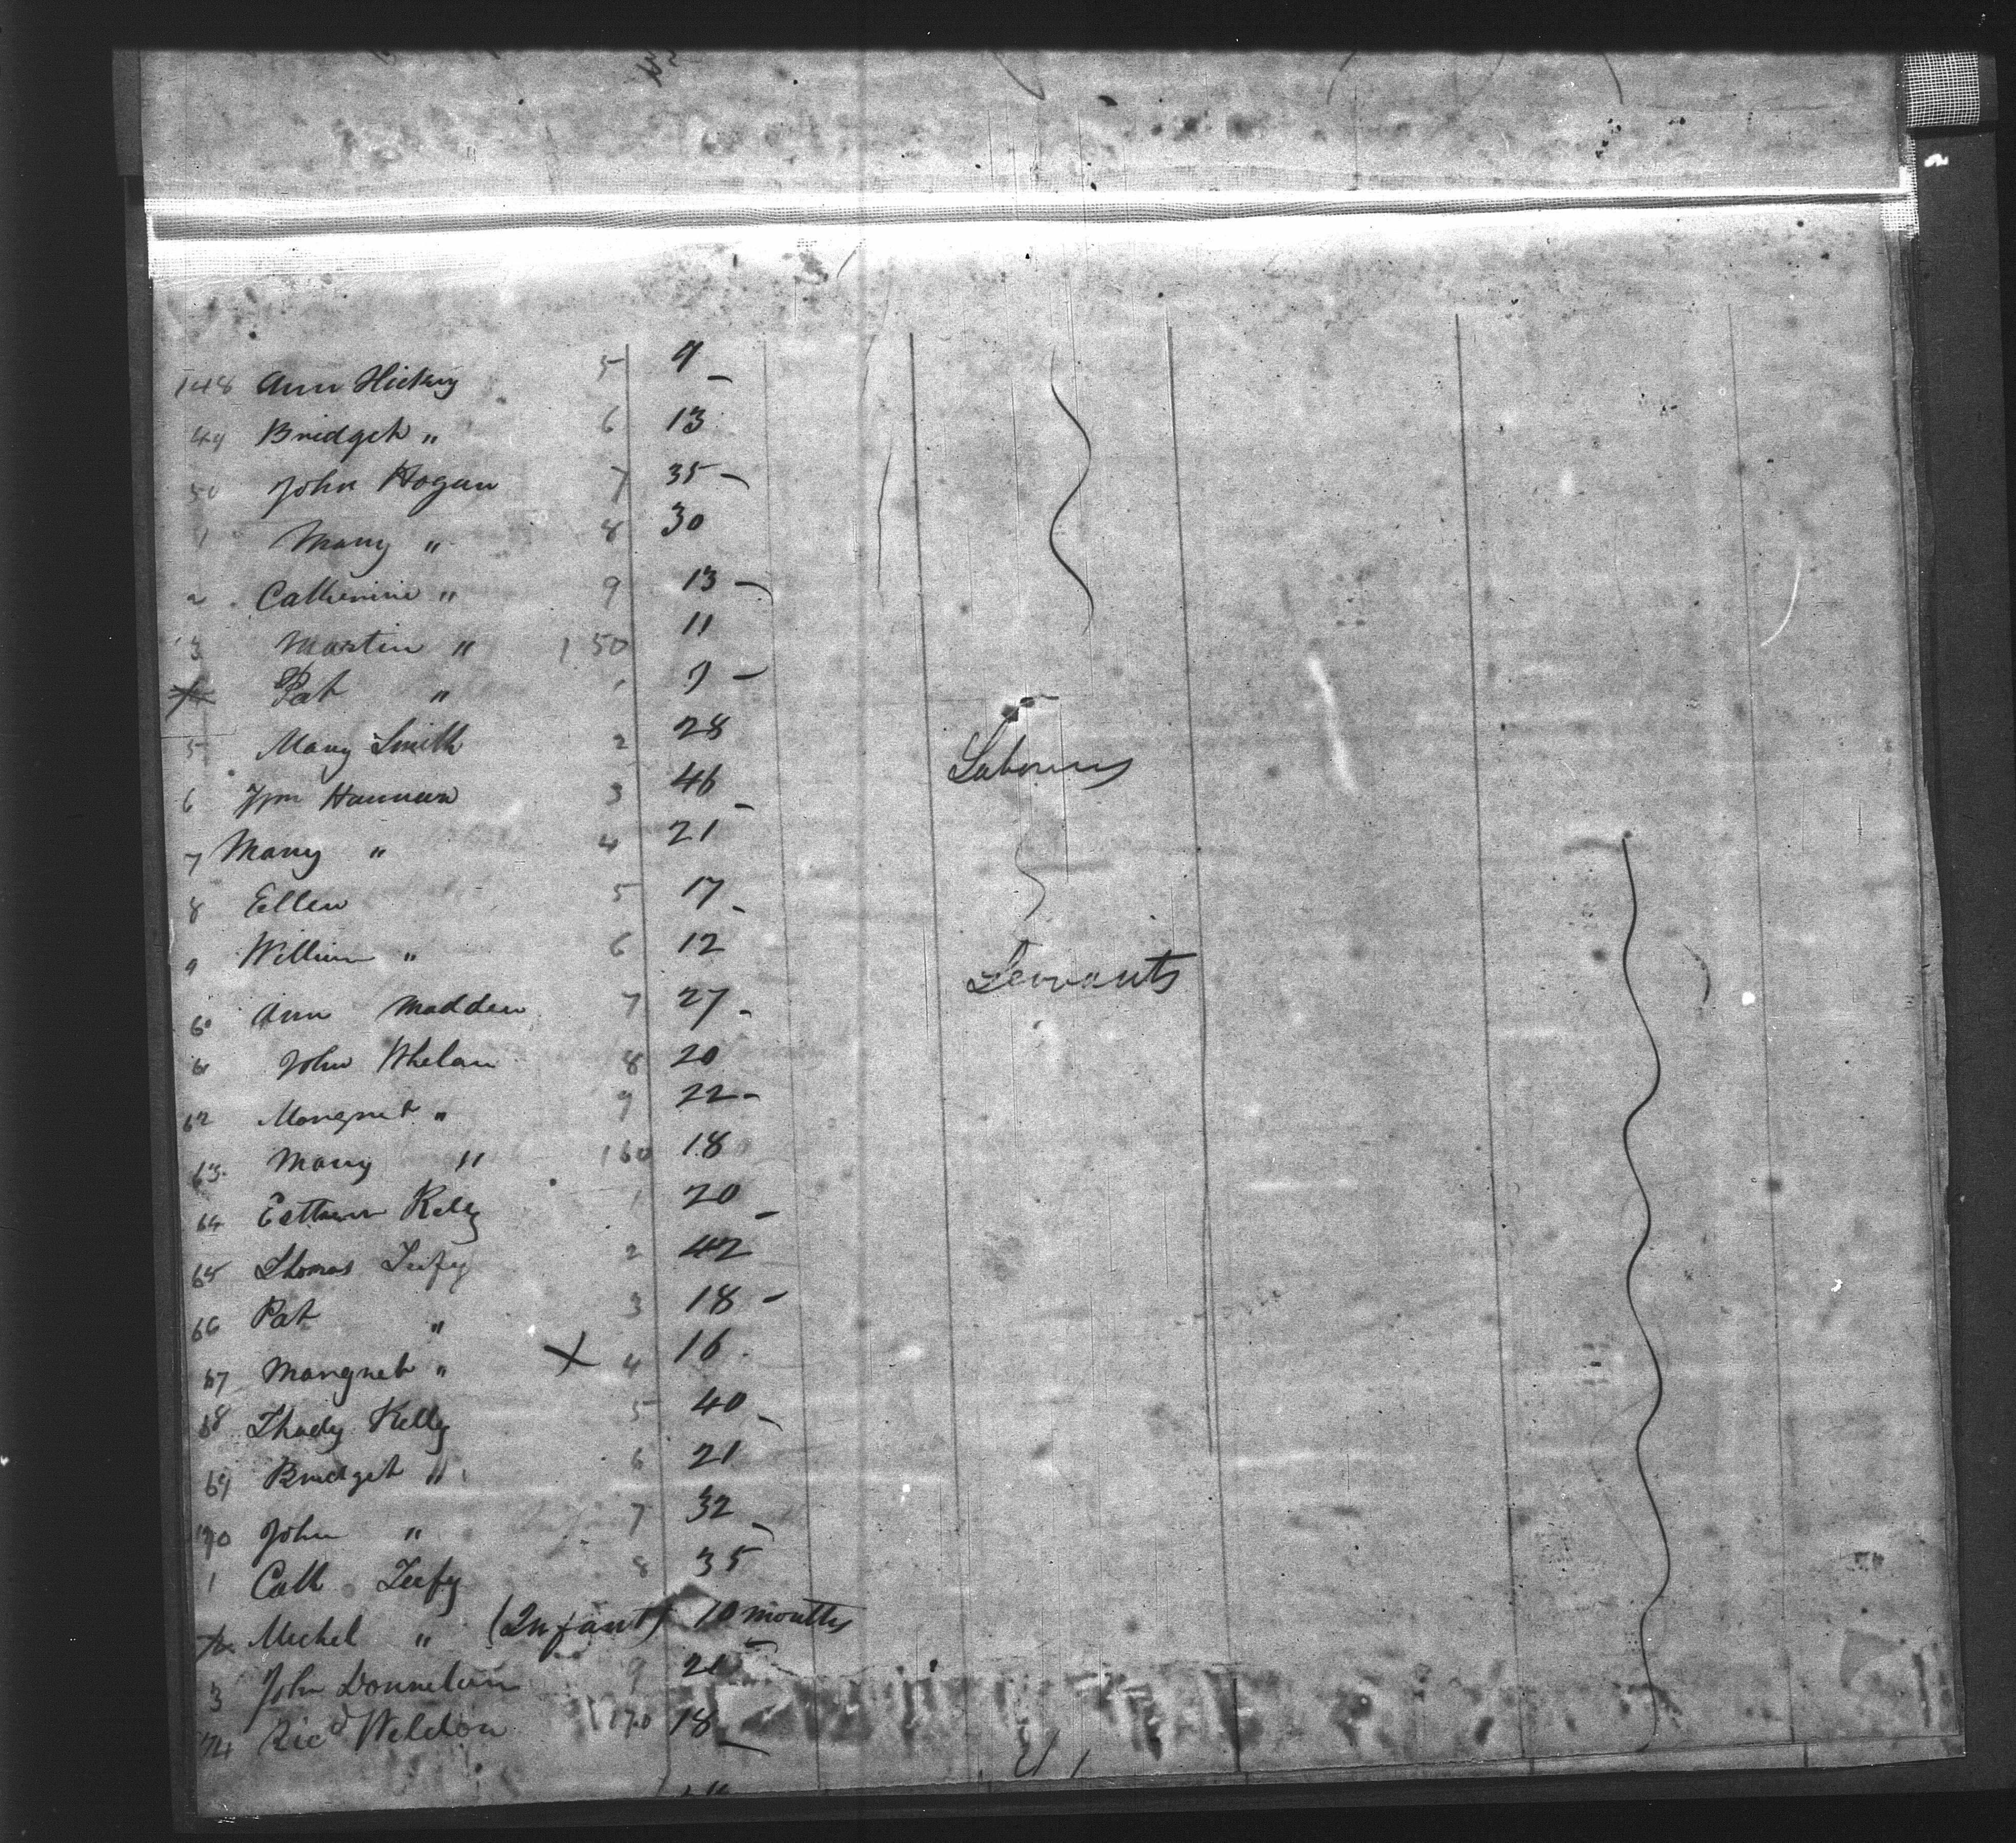 148 Ann Hickey 5 9 -
49 Bridget " 6 13
50 John Hogan 7 35 -
1 Mary " 8 30
2 Catherine " 9 13 -
3 Martin " 150 11
Pat " 1 -
5 Mary Smith 2 28
6 Hannan 3 46 - Labourers
7 Mary " 4 21
8 Ellen 5 17 -
9 William " 6 12
60 Ann Madden 7 27 - Servants
61 John Whelan 8 20
62 Margret " 9 22 -
63 Mary " 160 18
64 Kelly 1 20 -
65 Thomas Tufy 2 42
66 Pat " 3 18 -
67 Margret " X 4 16
68 Thady Kelly 5 40 -
69 Bridget " 6 21
170 John " 7 32 -
1 Cath Tufy 8 35
Michel " (Infant) 10 months
3 John Donnelan 9
74 Ricd Weldon 170 18 -